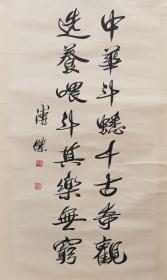 中華斗蟋千古奇觀
選養喂斗其樂無窮
溥傑